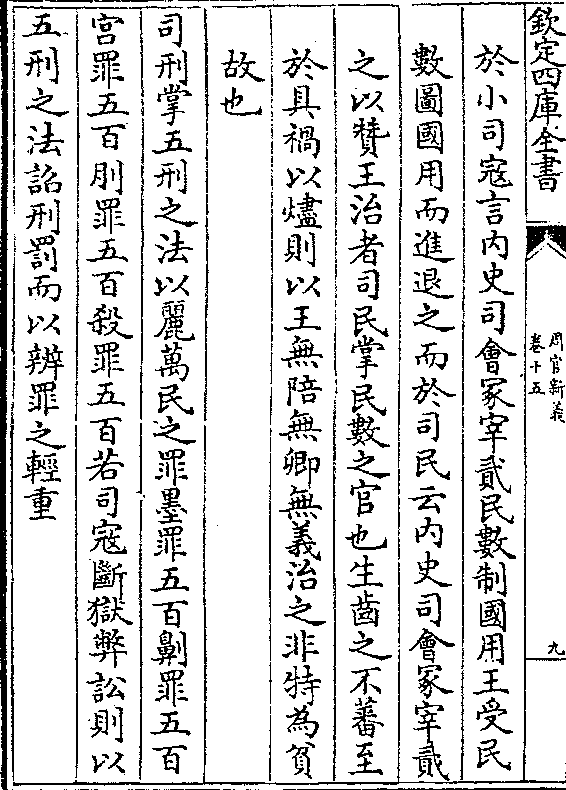 欽定四庫全書
周官新義
卷十五
九
於小司寇言内史司會冢宰貳民數制國用王受民
數圖國用而進退之而於司民云内史司會冢宰貳
之以贊王治者司民掌民數之官也生齒之不蕃至
於具禍以燼則以王無陪無卿無義治之非特為貧
故也
司刑掌五刑之法以麗萬民之罪墨罪五百劓罪五百
宫罪五百刖罪五百殺罪五百若司寇斷獄弊訟則以
五刑之法詔刑罰而以辨罪之輕重